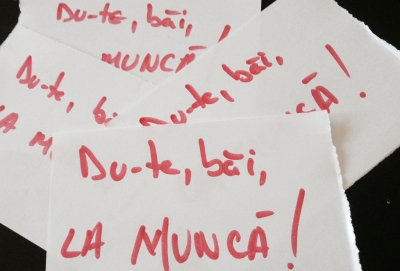 Du-te, băi,
MUNCĂ!
Du-te, bă
LA M
Du-te, băi,
CĂ!
Du-te, băi,
LA MUNCĂ!